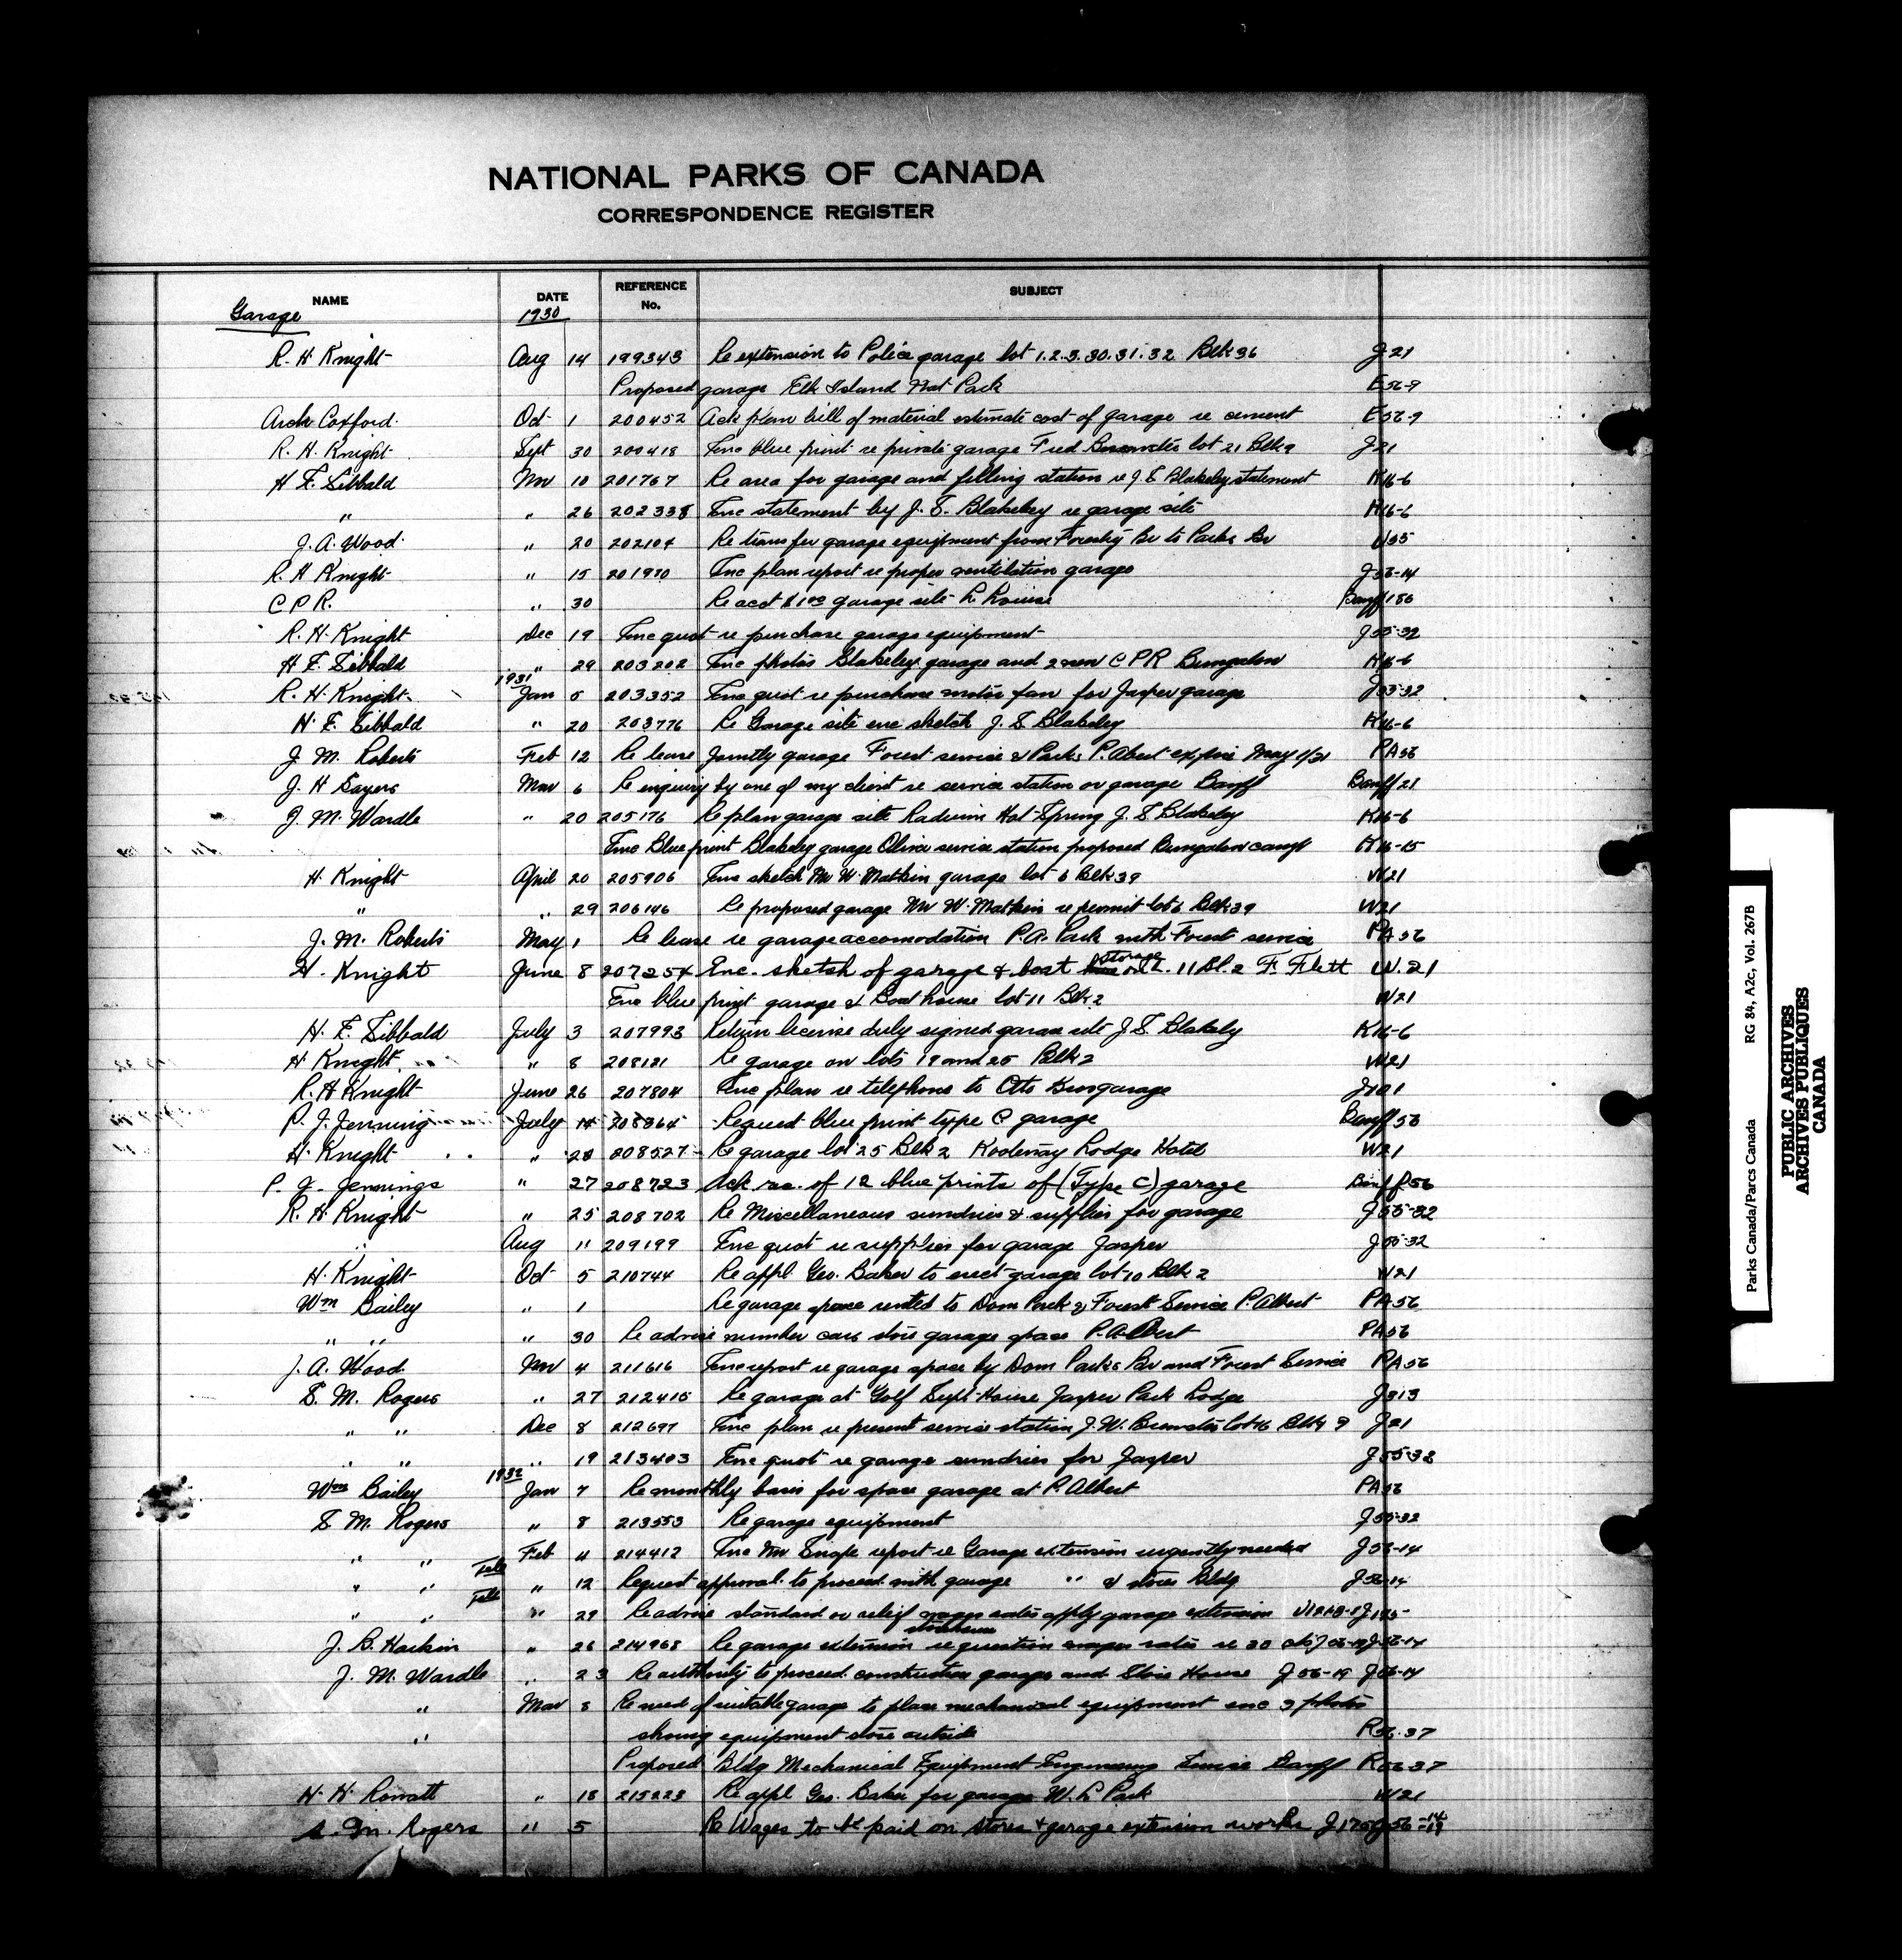 NATIONAL PARKS OF CANADA
CORRESPONDENCE REGISTER
NAME DATE REFERENCE No. SUBJECT
Garage 1930
R. H. Knight Aug 14 199343 Re extension to Police garage lot 1.2.3.30.31.32 Blk 36 J21
Proposed garage Elk Island Nat Park E56-9
Arch Coxford. Oct 1 200452 Ack plan bill of material estimate cost of garage re cement E56-9
R. H. Knight Sept 30 200418 Enc blue print re private garage Fred Brewster lot 21 Blk 9 J21
H E. Sibbald Nov 10 201767 Re area for garage and filling station re J S Blakeley statement K16-6
" " 26 202338 Enc statement by J. S. Blakeley re garage site K16-6
J. A. Wood. " 20 202104 Re transfer garage equipment from Forestry Br to Parks Br U55
R. H Knight " 15 201970 Enc plan report re proper ventilation garage J56-14
C P R. " 30 Re acct $1.00 garage site L. Louise Banff 186
R. H. Knight Dec 19 Enc quot re purchase garage equipment J55-32
H E. Sibbald " 29 203202 Enc photos Blakeley garage and 2 new C P R Bungalow K16-6
1931
R. H. Knight. Jan 5 203352 Enc quot re purchase motor fan for Jasper garage J55-32
H. E. Sibbald " 20 203776 Re Garage site enc sketch J. S Blakeley K16-6
J. M. Roberts Feb 12 Re lease Jointly garage Forest service & Parks P. Albert expire May 1/31 PA56
J. H Sayers Mar 6 Re enquiry by one of my client re service station or garage Banff Banff 21
J. M. Wardle " 20 205176 Re plan garage site Radium Hot Spring J. S Blakeley K16-6
Enc Blue print Blakeley garage Oliver service station proposed Bungalow camp K16-15
H. Knight April 20 205906 Enc sketch Mr W. Matkin garage lot 6 Blk 39 W21
" " 29 206146 Re proposed garage Mr W. Matkin re permit lot 6 Blk 39 W21
J. M. Roberts May 1 Re lease re garage accomodation P.A. Park with Forest service PA56
H. Knight June 8 207254 Enc. sketch of garage & boat storage on L. 11 Bl. 2 F. Flett W.21
Enc blue print garage & Boat house lot 11 Blk 2 W21
H. E. Sibbald July 3 207993 Return license duly signed garage site J. S. Blakely K16-6
H Knight. " 8 208121 Re garage on lots 19 and 25 Blk 2 W21
R. H Knight June 26 207804 Enc plan re telephone to Otto Bros garage J101
P. J. Jenning July 14 208364 Request blue print type C garage Banff 56
H. Knight " 20 208527 Re garage lot 25 Blk 2 Kootenay Lodge Hotel W21
P. J. Jennings " 27 208723 Ack rec. of 12 blue prints of (Type C) garage Banff 56
R. H. Knight " 25 208702 Re Miscellaneous sundries & supplies for garage J55-32
" Aug 11 209199 Enc quot re supplies for garage Jasper J55-32
H. Knight Oct 5 210744 Re appl Geo. Baker to erect garage lot 10 Blk 2 W21
Wm Bailey " 1 Re garage space rented to Dom Park & Forest Service P. Albert PA56
" " " 30 Re advise number cars store garage space P. Albert PA56
J. A. Wood. Nov 4 211616 Enc report re garage space by Dom Parks Br and Forest Service PA56
S. M. Rogers " 27 212415 Re garage at Golf Supt House Jasper Park Lodge J313
" " Dec 8 212697 Enc plan re present service station J. W. Brewster lot 16 Blk 9 J21
" " " 19 213403 Enc quot re garage sundries for Jasper J55-32
1932
Wm Bailey Jan 7 Re monthly basis for space garage at P. Albert PA56
S. M. Rogers " 8 213553 Re garage equipment J55-32
" " Feb 4 214412 Enc Mr Snape report re Garage extension urgently needed J56-14
" " Feb " 12 Request approval to proceed with garage " & stores Bldg J56-14
" " Feb " 29 Re advise standard or relief wages rates apply garage extension J175
storehouse
J. B. Harkin " 26 214968 Re garage extension re question wages rates re 30 J56-14
J. M. Wardle " 23 Re authority to proceed construction garage and Store House J56-19 J56-14
" Mar 8 Re need of suitable garage to place mechanical equipment enc 3 photos
" showing equipment store outside R56-37
Proposed Bldg Mechanical Equipment Engineering Service Banff R56-37
H. H. Rowatt " 18 215223 Re appl Geo. Baker for garage W. L Park W21
S. M. Rogers " 5 Re Wages to be paid on stores & garage extension works J175 J56-14-19
Parks Canada/Parcs Canada RG 84, A2c, Vol. 267B
PUBLIC ARCHIVES
ARCHIVES PUBLIQUES
CANADA